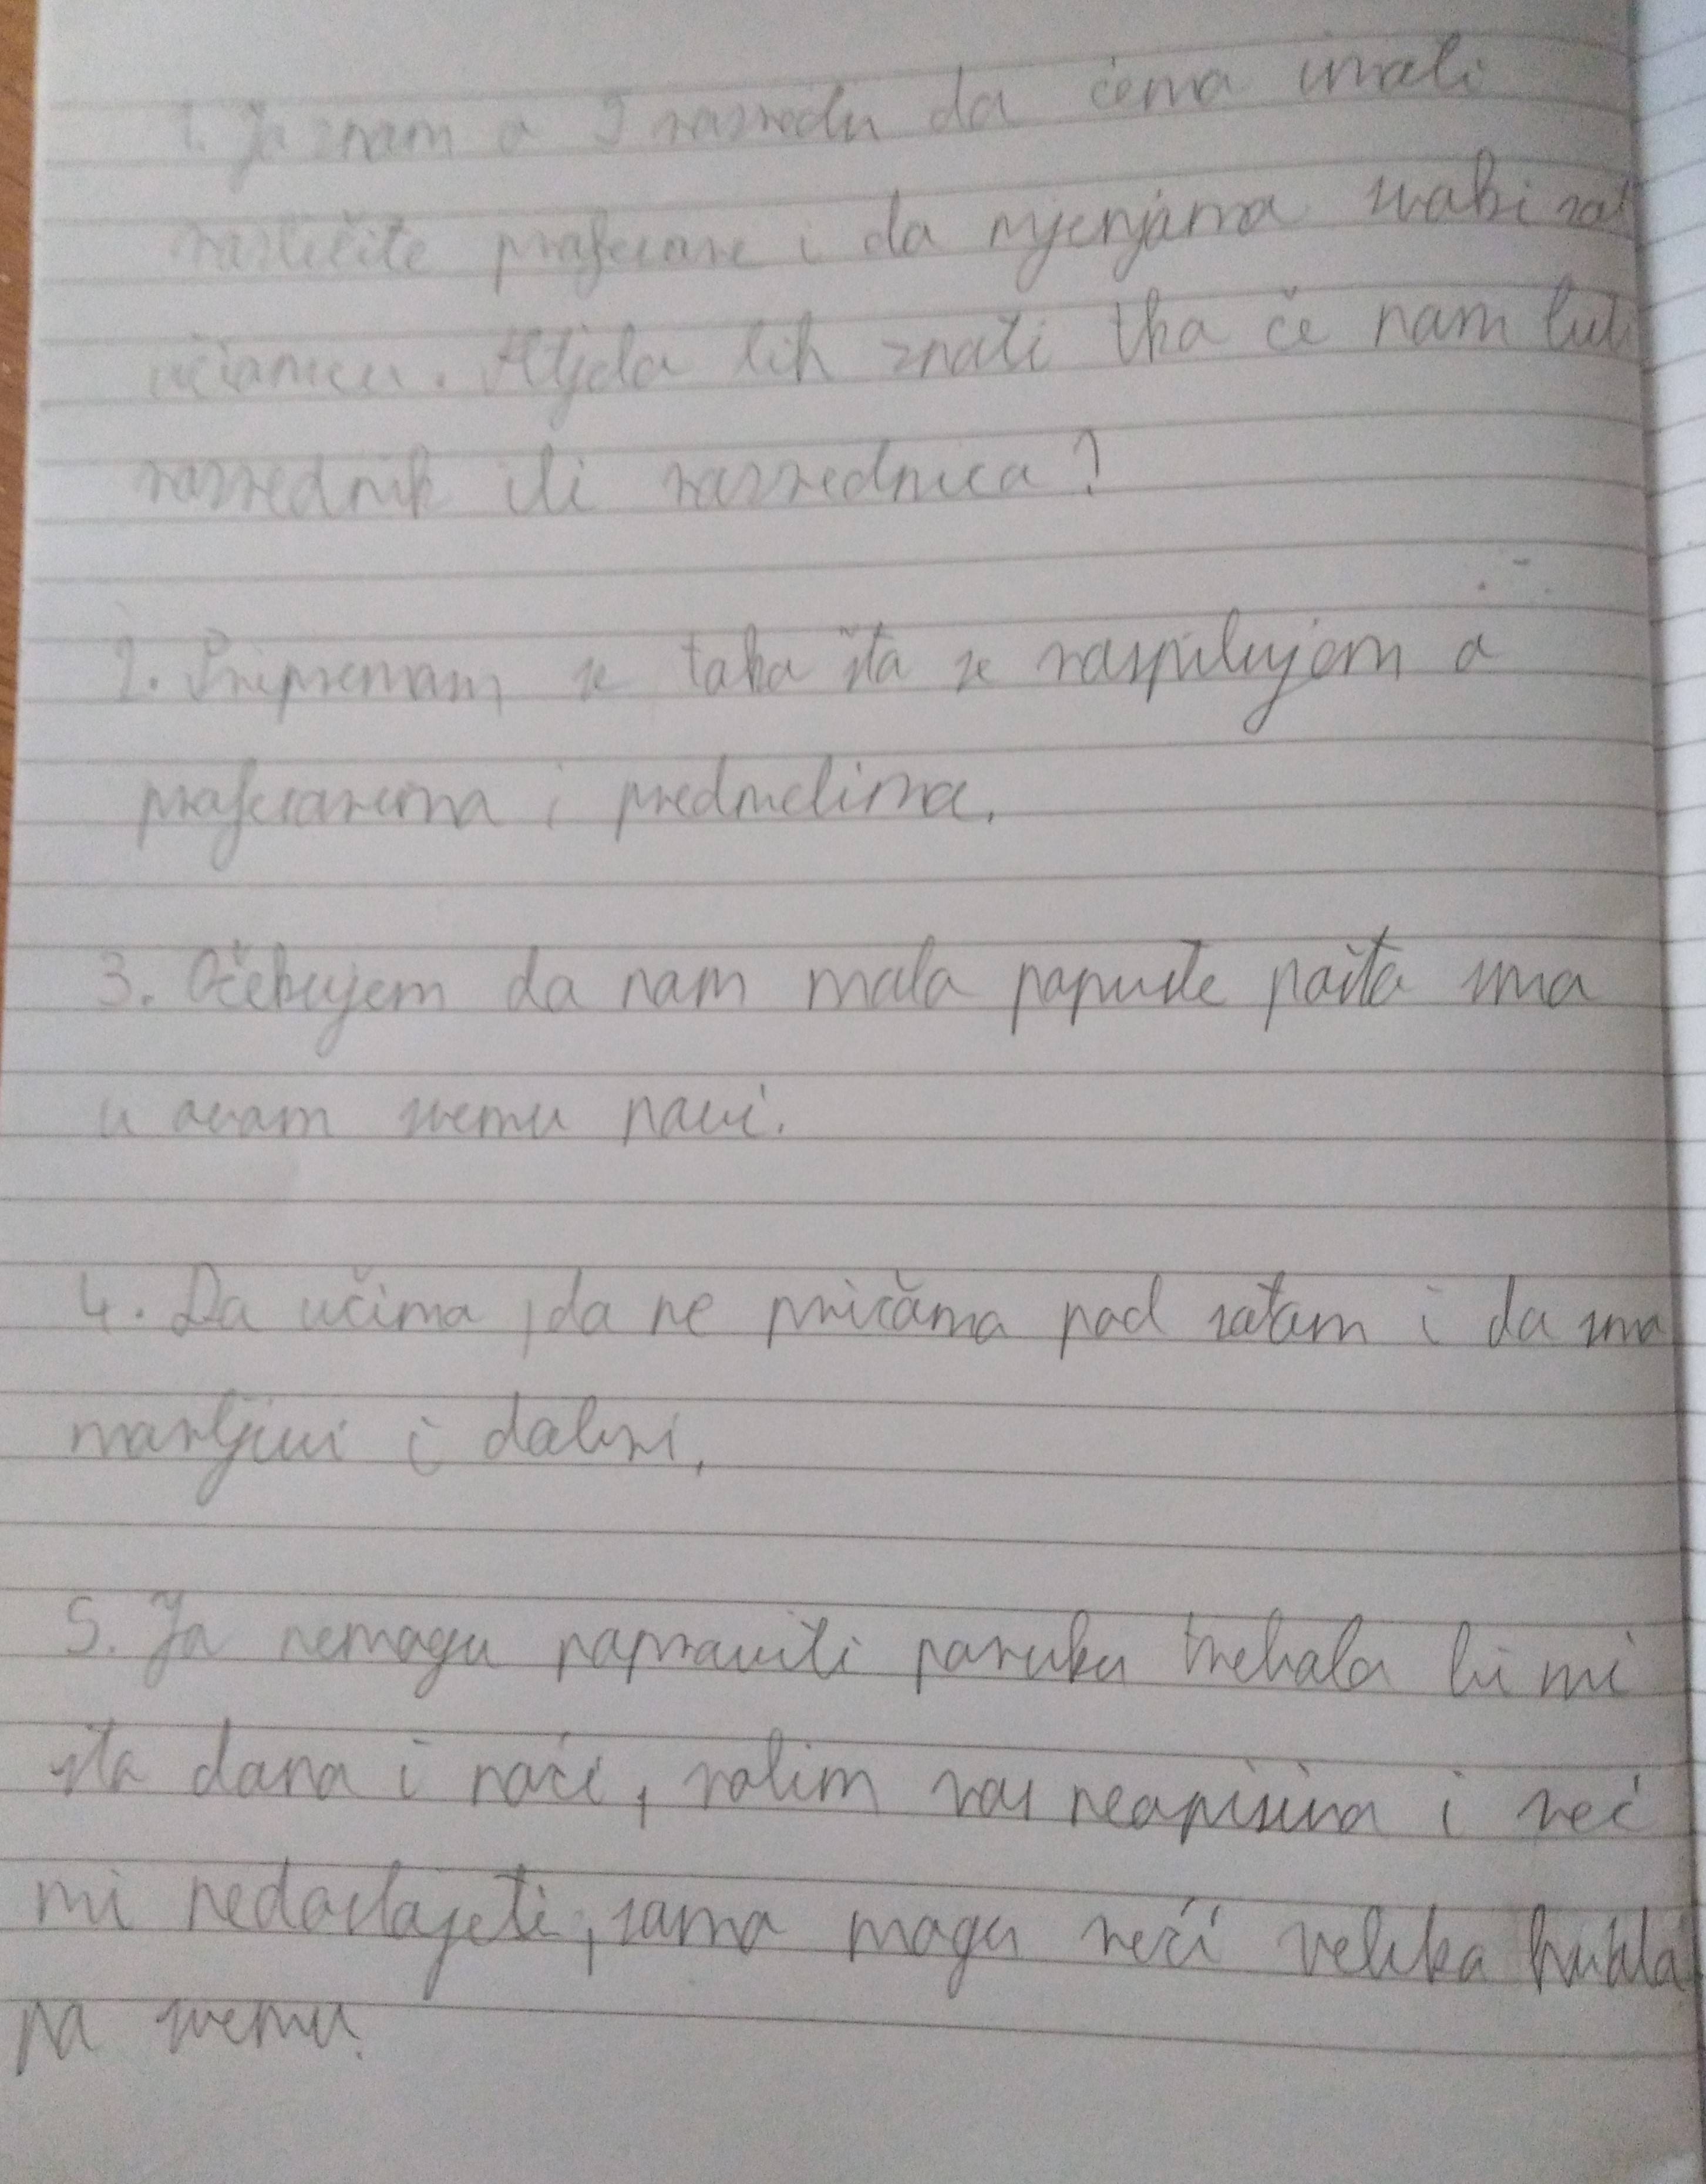 1. Ja znam o 5 razredu da ćemo imati
različite profesore i da mjenjamo svaki sat
učionicu. Htjela bih znati tko če nam biti
razrednik ili razrednica?
2. Pripremam se tako što se raspitujem o
profesorima i predmetima.
3. Očekujem da nam malo popuste pošto smo
u ovom svemu novi.
4. Da učimo, da ne pričamo pod satom i da smo
marljivi i dobri.
5. Ja nemogu napraviti poruku trebalo bi mi
sto dana i noći, volim vas neopisivo i već
mi nedostajete, samo mogu reći veliko hvala
na svemu.